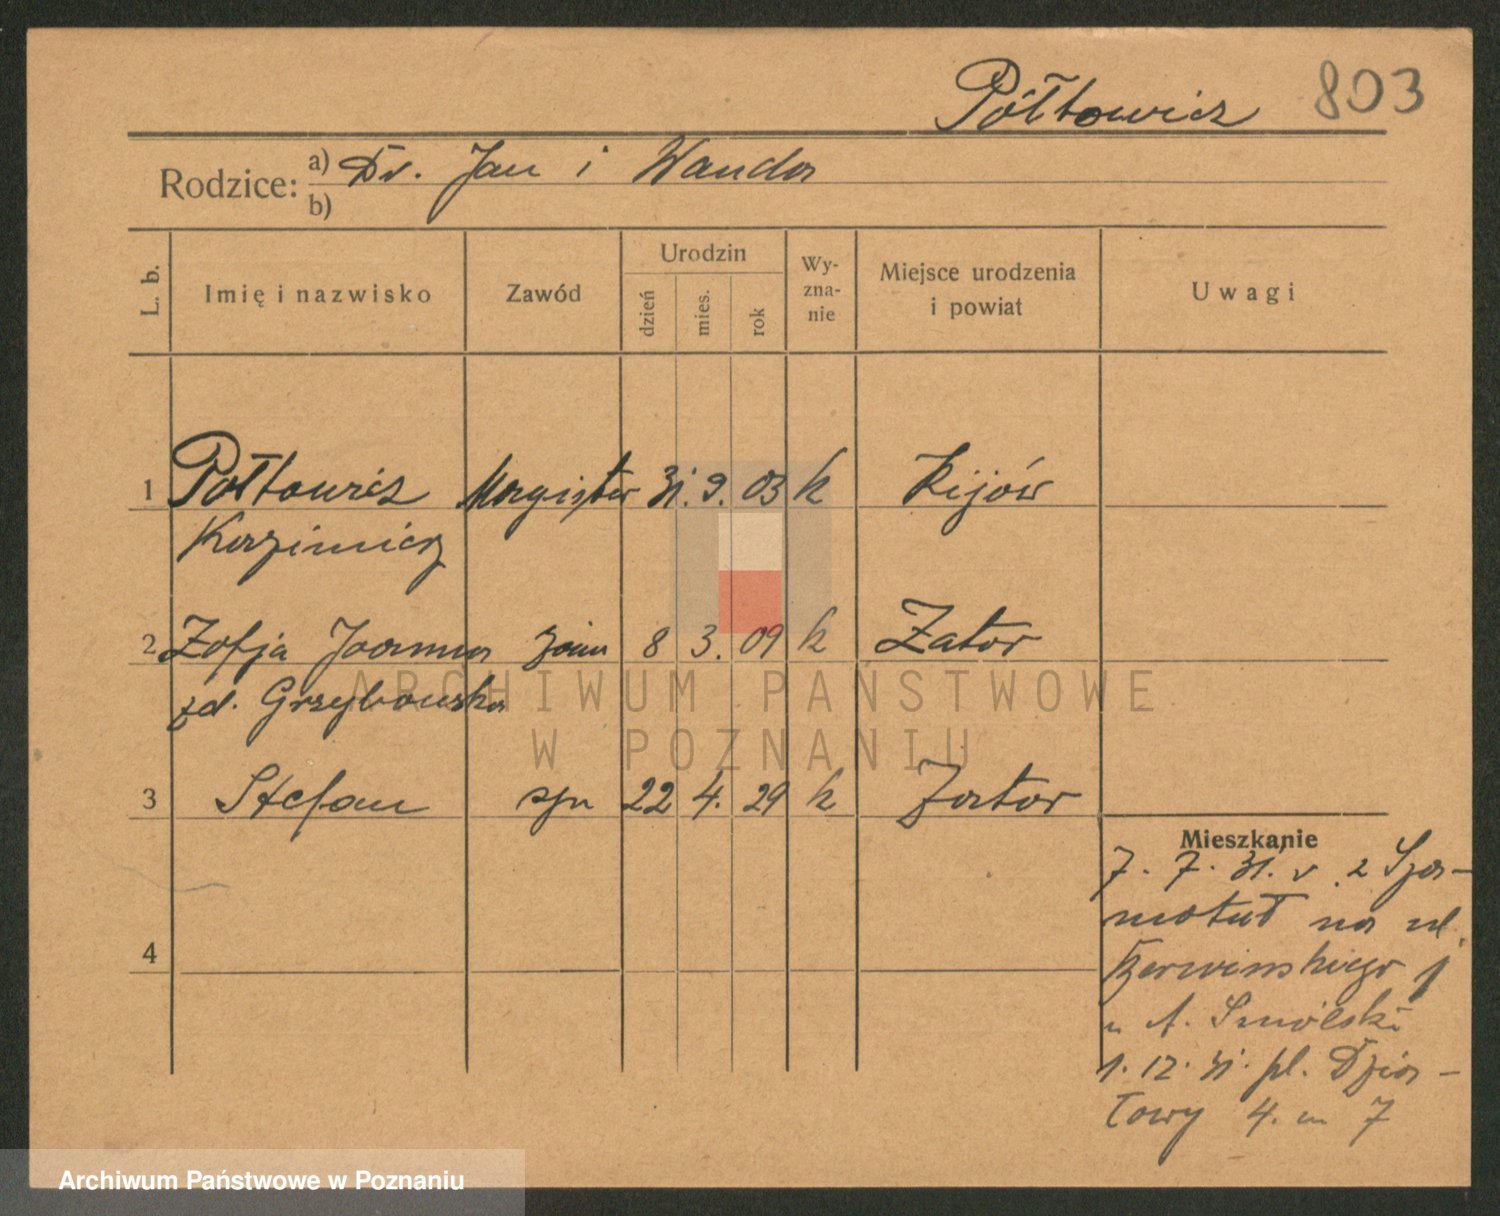 Półtowicz 803
Rodzice: a) Dr. Jan i Wanda
b)
L. b. Imię i nazwisko Zawód Urodzin dzień mies. rok Wy-zna-nie Miejsce urodzenia i powiat Uwagi
1 Połtowicz Magister 31. 9. 03 k Kijów
Kazimierz
2 Zofja Joanna żona 8 3. 09 k Zator
zd. Grzybowska
3 Stefan syn 22 4. 29 k Zator
Mieszkanie
7. 7. 31. v. z Sza-
motuł na ul.
Berwińskiego 1
u A. Smólski
4
1. 12. 31. pl. Dzia-
łowy 4. m 7
ARCHIWUM PAŃSTWOWE
W POZNANIU
Archiwum Państwowe w Poznaniu